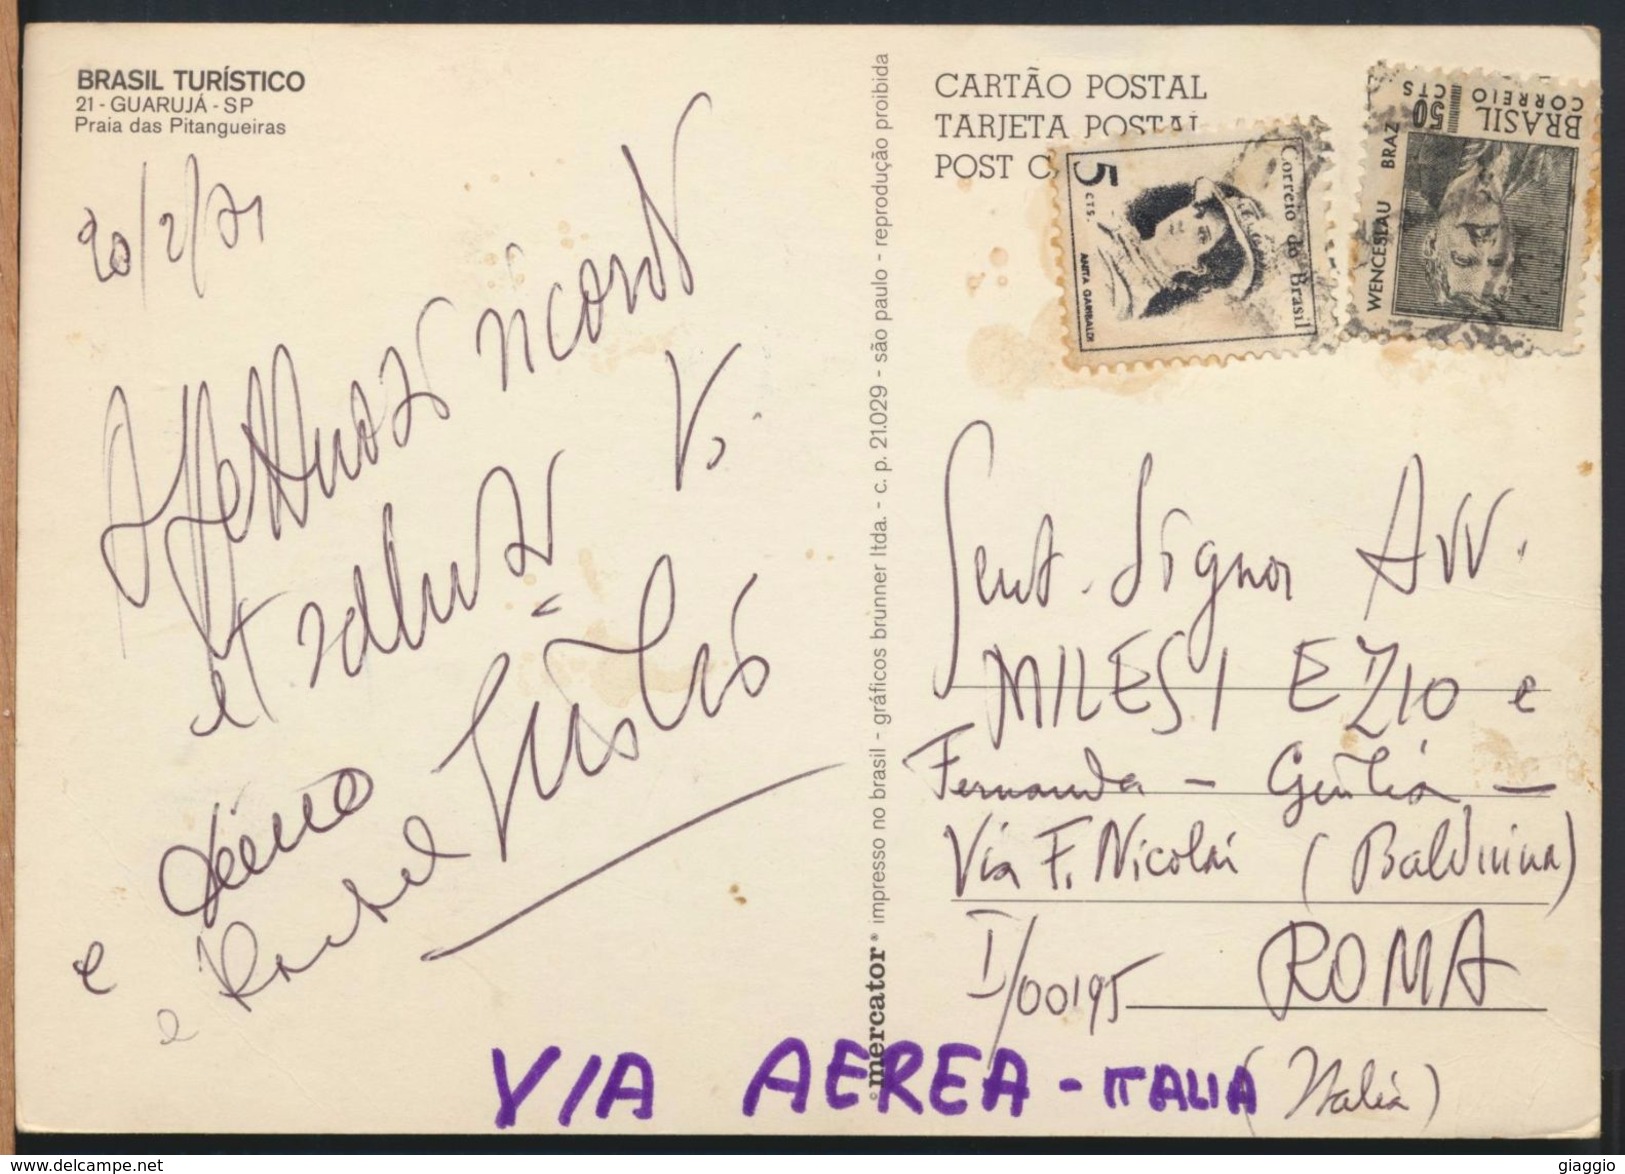 BRASIL TURÍSTICO
21 - GUARUJÁ - SP
Praia das Pitangueiras
20/2/71
Affettuosi ricordi
et saluti V.
e
e Rachel
mercator® impresso no brasil - gráficos brunner ltda. - c. p. 21.029 - são paulo - reprodução proibida
CARTÃO POSTAL
TARJETA POSTAL
POST C
5 CTS.
Correio do Brasil
ANITA GARIBALDI
50 CTS
BRASIL
CORREIO
WENCESLAU BRAZ
Gent. Signor Avv.
MILESI EZIO e
Fernanda - Giulia -
Via F. Nicolai (Balduina)
I/00195 ROMA
(Italia)
VIA AEREA - ITALIA
giaggio